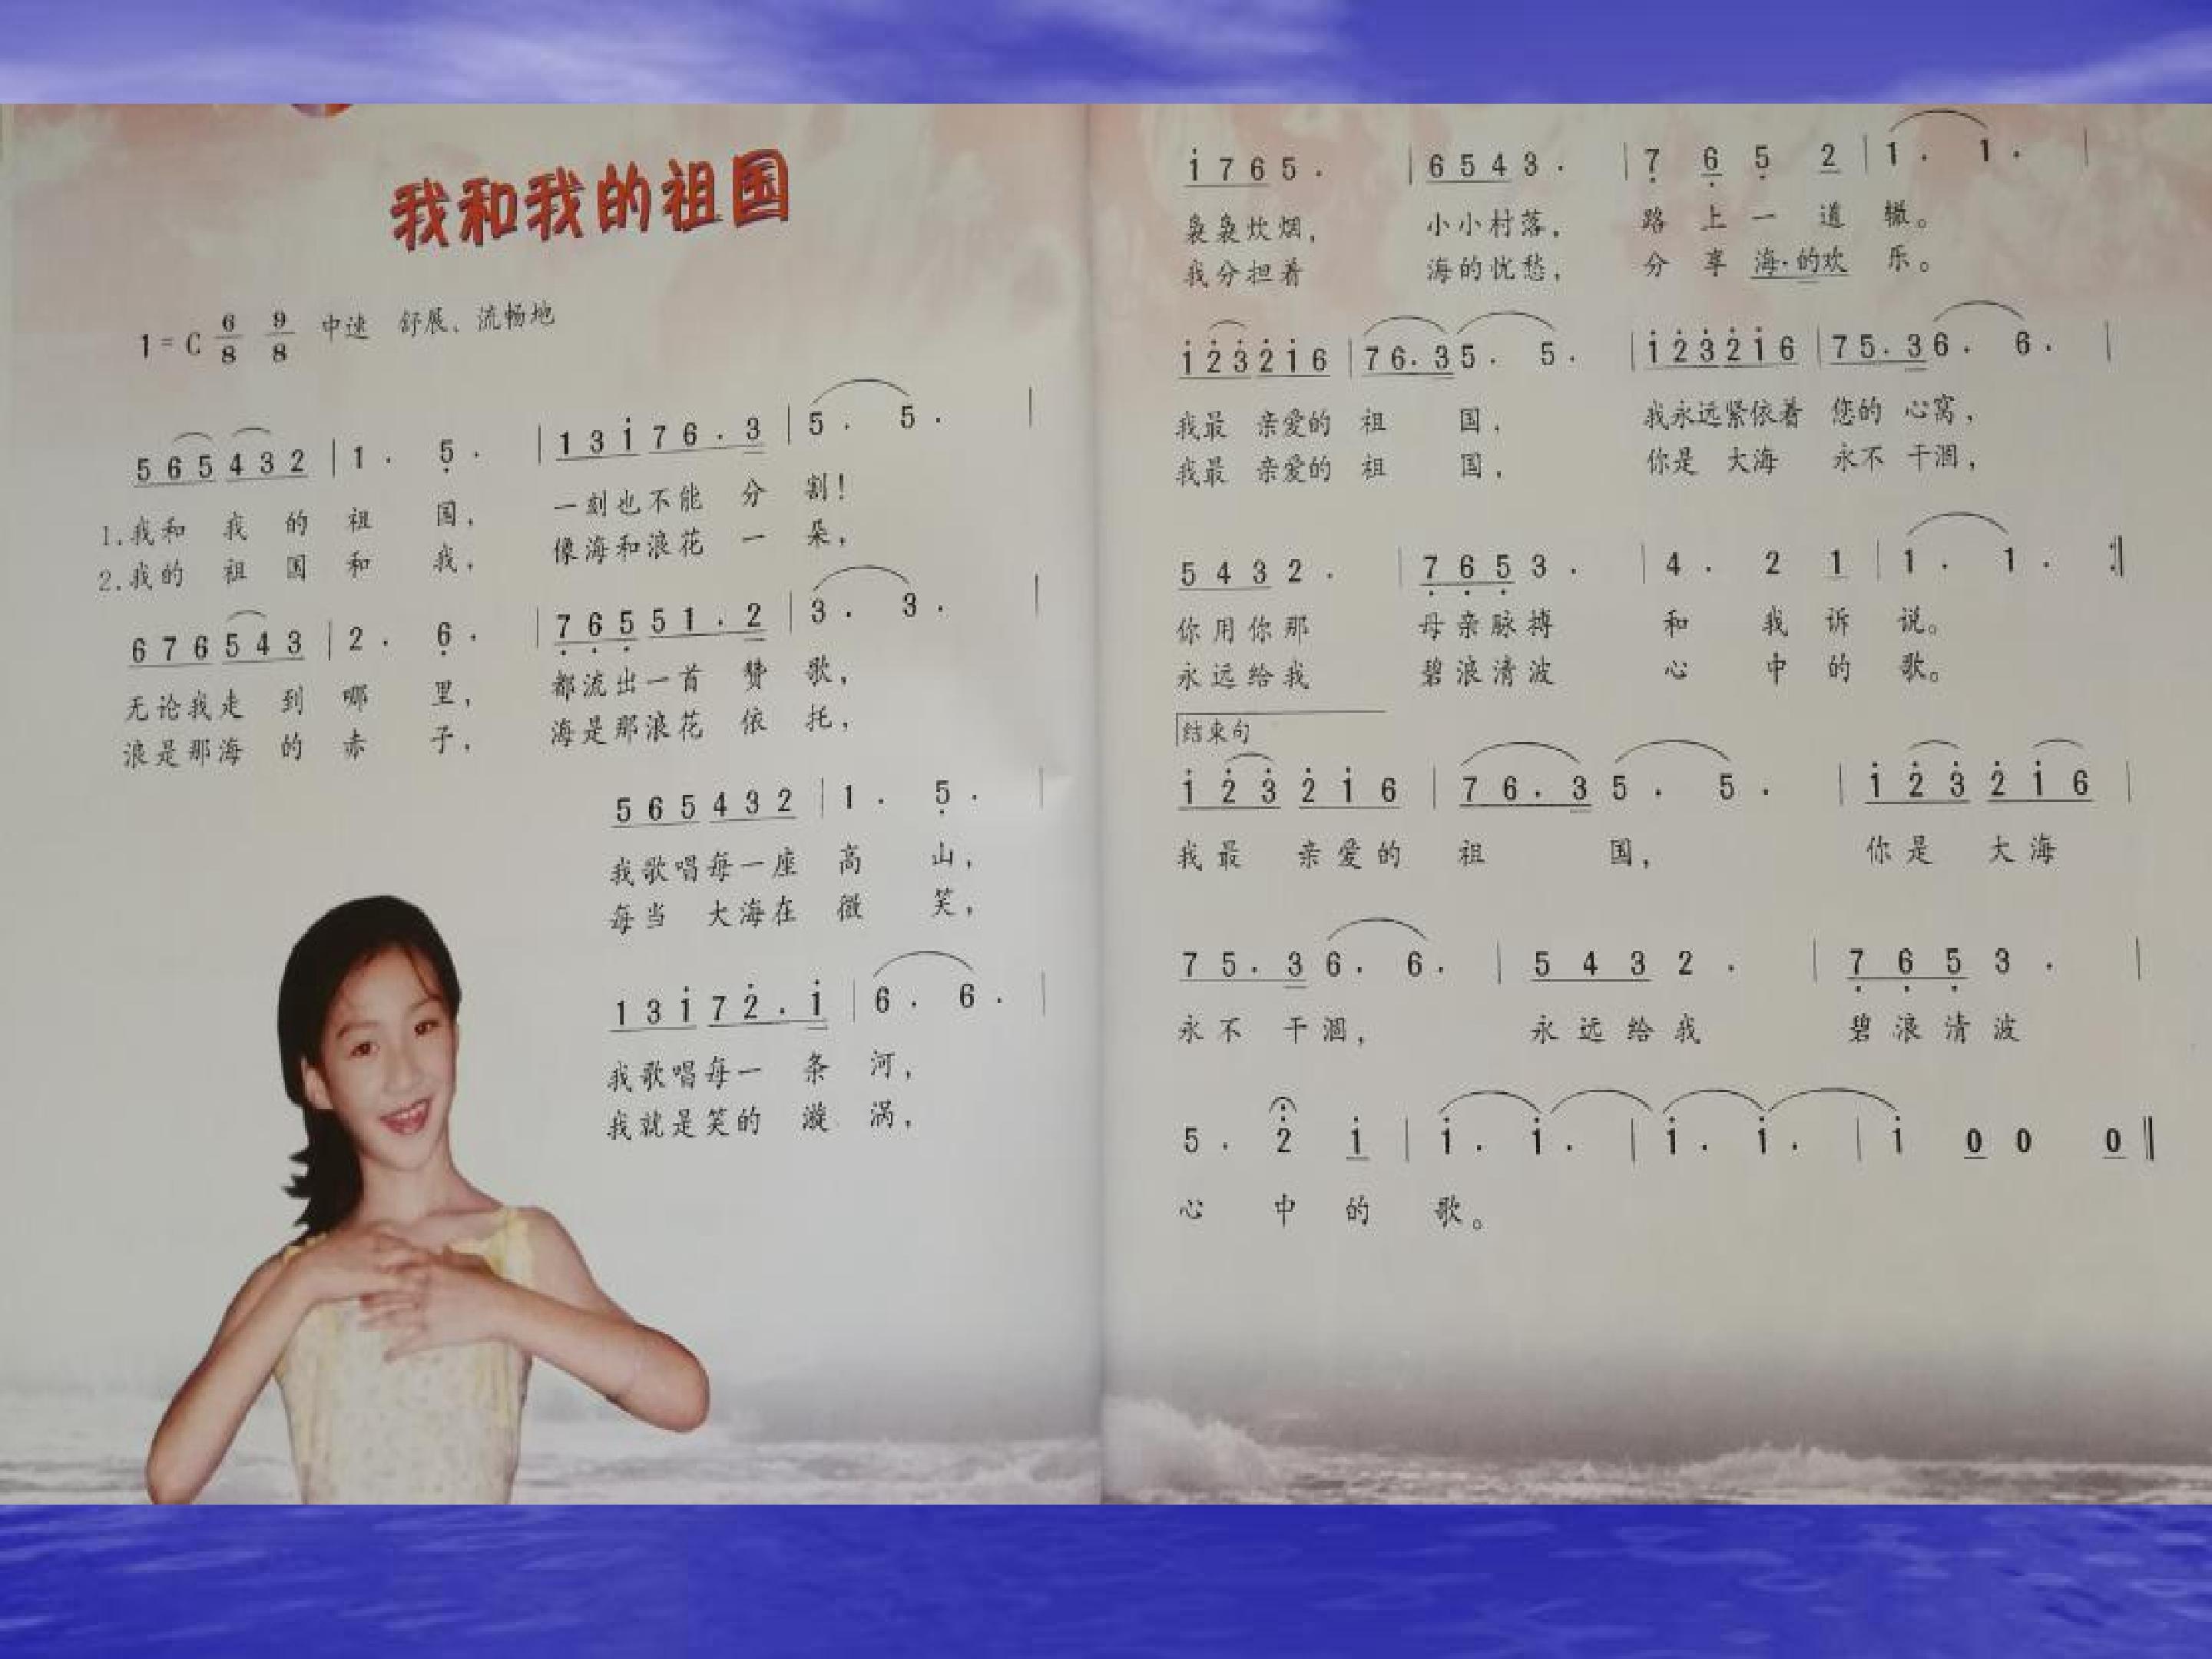 我和我的祖国
1=C 6/8 9/8 中速 舒展、流畅地
5 6 5 4 3 2 | 1 . 5̣ . | 1 3 i 7 6 . 3 | 5 . 5 . |
1.我和 我 的 祖 国, 一刻也不能 分 割!
2.我的 祖 国 和 我, 像海和浪花 一 朵,
6 7 6 5 4 3 | 2 . 6̣ . | 7̣ 6̣ 5̣ 5 1 . 2 | 3 . 3 . |
无论我走 到 哪 里, 都流出一首 赞 歌,
浪是那海 的 赤 子, 海是那浪花 依 托,
5 6 5 4 3 2 | 1 . 5̣ . |
我歌唱每一座 高 山,
每当 大海在 微 笑,
1 3 i 7 2̇ . i | 6 . 6 . |
我歌唱每一 条 河,
我就是笑的 漩 涡,
i 7 6 5 . | 6 5 4 3 . | 7̣ 6̣ 5̣ 2 | 1 . 1 . |
袅袅炊烟, 小小村落, 路 上 一 道 辙。
我分担着 海的忧愁, 分 享 海·的欢 乐。
i 2̇ 3̇ 2̇ i 6 | 7 6 . 3 5 . 5 . | i 2̇ 3̇ 2̇ i 6 | 7 5 . 3 6 . 6 . |
我最 亲爱的 祖 国, 我永远紧依着 您的 心窝,
我最 亲爱的 祖 国, 你是 大海 永不 干涸,
5 4 3 2 . | 7̣ 6̣ 5̣ 3 . | 4 . 2 1 | 1 . 1 . :‖
你用你那 母亲脉搏 和 我 诉 说。
永远给我 碧浪清波 心 中 的 歌。
结束句
i 2̇ 3̇ 2̇ i 6 | 7 6 . 3 5 . 5 . | i 2̇ 3̇ 2̇ i 6 |
我最 亲爱的 祖 国, 你是 大海
7 5 . 3 6 . 6 . | 5 4 3 2 . | 7̣ 6̣ 5̣ 3 . |
永不 干涸, 永远给我 碧浪清波
5 . 2̇ i | i . i . | i . i . | i 0 0 0 ‖
心 中 的 歌。